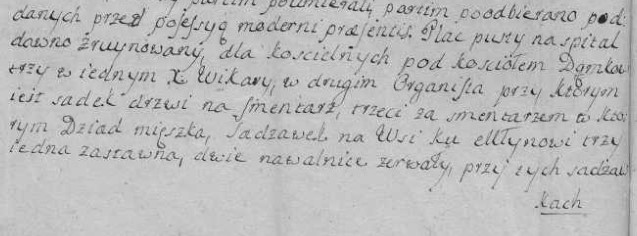 partim poumierali partim poodbierano pod=
danych przed possessyą moderni præsentis. Plac pusty na szpital
dawno zruynowany, dla koscielnych pod kosciołem Domkow
trzy w iednym X Wikary, w drugim Organista przy ktorym
iest sadek drzwi na smentarz, trzeci za smentarzem w kto=
rym Dziad mięszka, Sadzawek na Wsi ku Młynowi trzy
iedna zastawna, dwie nawalnice zerwały, przy tych sadzaw
kach